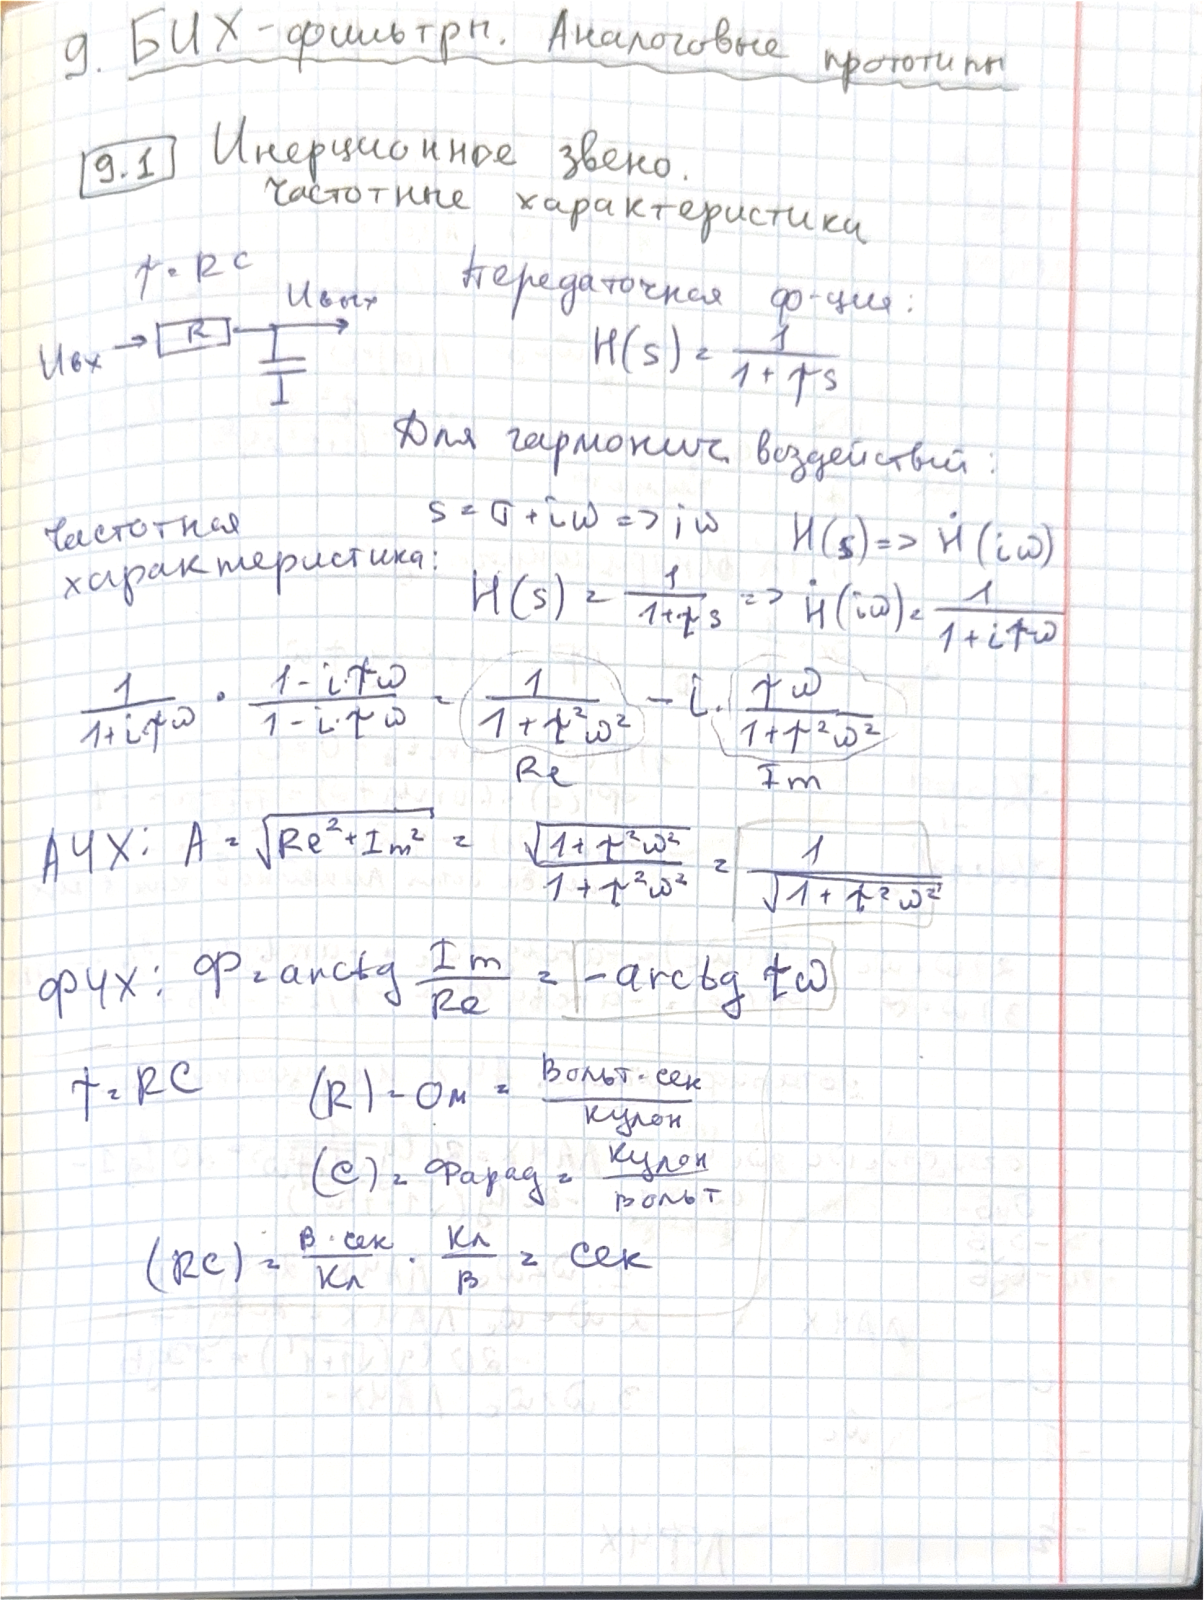 9. БИХ-фильтры. Аналоговые прототипы
9.1 Инерционное звено.
Частотные характеристики
τ = RC
Передаточная ф-ция:
Uвх → R Uвых
H(s) = 1/(1 + τs)
Для гармонич. воздействий:
Частотная характеристика:
s = σ + iω => iω H(s) => Ḣ(iω)
H(s) = 1/(1+τs) => Ḣ(iω) = 1/(1 + iτω)
1/(1+i·τω) · (1 - i·τω)/(1 - i·τω) = 1/(1 + τ²ω²) - i · τω/(1 + τ²ω²)
Re Im
АЧХ: A = √(Re² + Im²) = √(1 + τ²ω²)/(1 + τ²ω²) = 1/√(1 + τ²ω²)
ФЧХ: Φ = arctg Im/Re = -arctg τω
τ = RC (R) = Ом = Вольт·сек/кулон
(C) = Фарад = кулон/вольт
(RC) = В·сек/Кл · Кл/В = сек